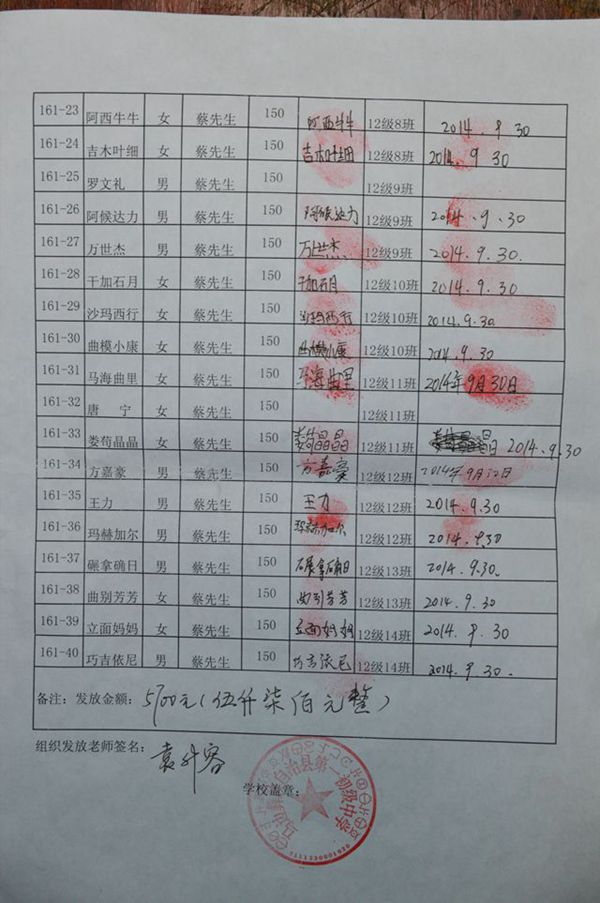 161-23 阿西牛牛 女 蔡先生 150 阿西牛牛 12级8班 2014.9.30
161-24 吉木叶细 女 蔡先生 150 吉木叶细 12级8班 2014.9.30
161-25 罗文礼 男 蔡先生 150 12级9班
161-26 阿候达力 男 蔡先生 150 阿候达力 12级9班 2014.9.30
161-27 万世杰 男 蔡先生 150 万世杰 12级9班 2014.9.30.
161-28 干加石月 女 蔡先生 150 干加石月 12级10班 2014.9.30
161-29 沙玛西行 女 蔡先生 150 沙玛西行 12级10班 2014.9.30
161-30 曲模小康 女 蔡先生 150 曲模小康 12级10班 2014.9.30
161-31 马海曲里 女 蔡先生 150 马海曲里 12级11班 2014年9月30日
161-32 唐 宁 女 蔡先生 150 12级11班
161-33 娄荀晶晶 女 蔡先生 150 娄荀晶晶 12级11班 2014.9.30
161-34 方嘉豪 男 蔡先生 150 方嘉豪 12级12班 2014年9月30日
161-35 王力 男 蔡先生 150 王力 12级12班 2014.9.30
161-36 玛赫加尔 男 蔡先生 150 玛赫加尔 12级12班 2014.9.30
161-37 碾拿确日 男 蔡先生 150 碾拿确日 12级13班 2014.9.30.
161-38 曲别芳芳 女 蔡先生 150 曲别芳芳 12级13班 2014.9.30
161-39 立面妈妈 女 蔡先生 150 立面妈妈 12级14班 2014.9.30
161-40 巧吉依尼 男 蔡先生 150 巧吉依尼 12级14班 2014.9.30.
备注：发放金额：5700元(伍仟柒佰元整)
组织发放老师签名：
学校盖章：
自治县第一初级中学